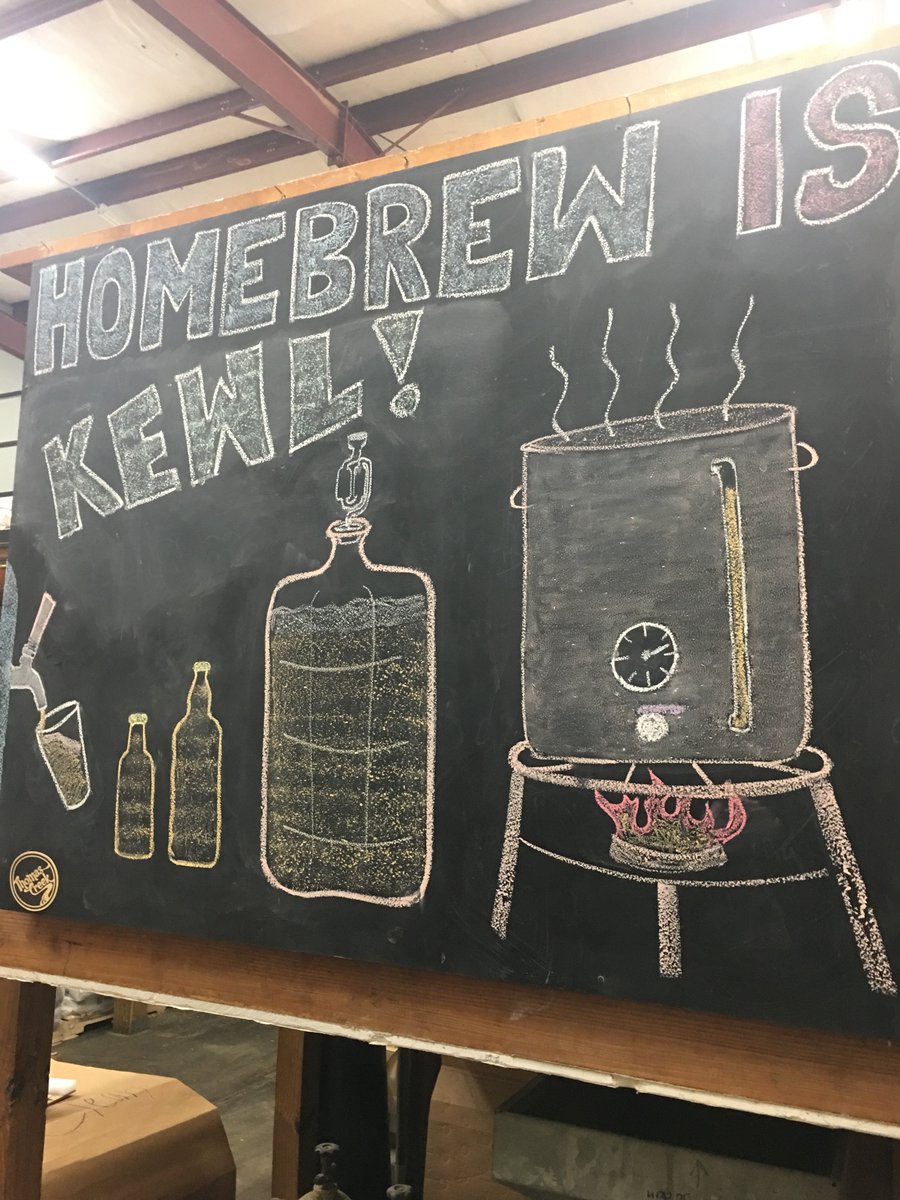 HOMEBREW IS
KEWL!
Thomas
Creek